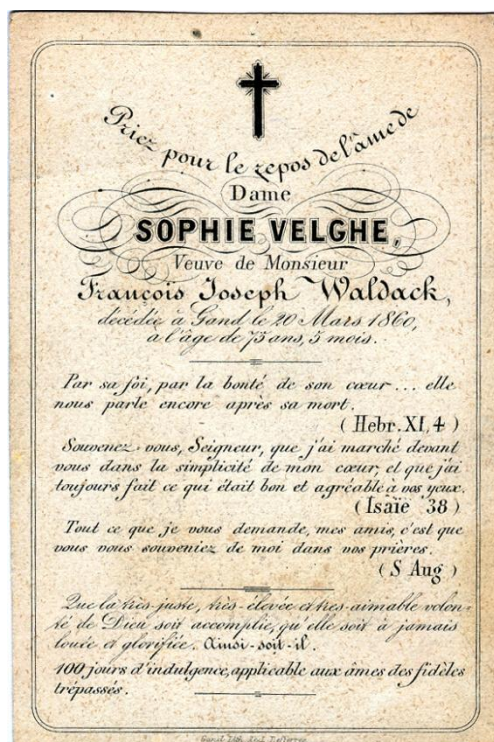 Priez pour le repos de l'âme de
Dame
SOPHIE VELGHE,
Veuve de Monsieur
François Joseph Waldack,
décédée à Gand le 20 Mars 1860,
a l'âge de 75 ans, 5 mois.
Par sa foi, par la bonté de son cœur... elle
nous parle encore après sa mort.
( Hebr. XI, 4 )
Souvenez-vous, Seigneur, que j'ai marché devant
vous dans la simplicité de mon cœur, et que j'ai
toujours fait ce qui était bon et agréable à vos yeux.
( Isaïe 38 )
Tout ce que je vous demande, mes amis, c'est que
vous vous souveniez de moi dans vos prières.
( S Aug )
Que la très-juste, très-élevée et très-aimable volon-
té de Dieu soit accomplie, qu'elle soit à jamais
louée et glorifiée. Ainsi-soit-il.
100 jours d'indulgence, applicable aux âmes des fidèles
trépassés.